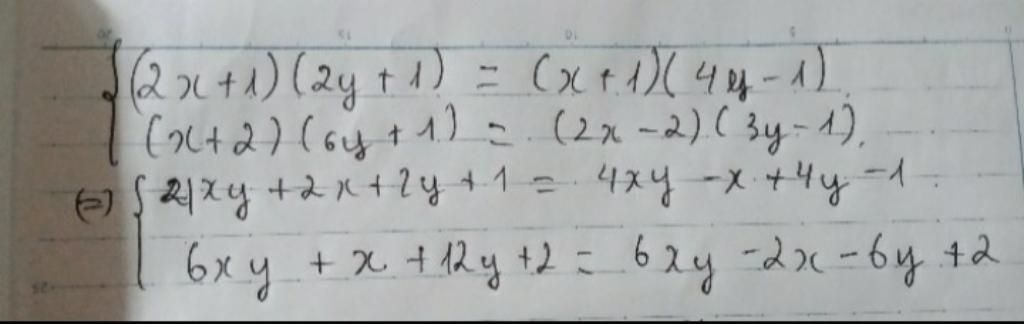 { (2x+1)(2y+1) = (x+1)(4y-1)
(x+2)(6y+1) = (2x-2)(3y-1).
(=) { 4xy+2x+2y+1 = 4xy-x+4y-1
6xy+x+12y+2 = 6xy-2x-6y+2